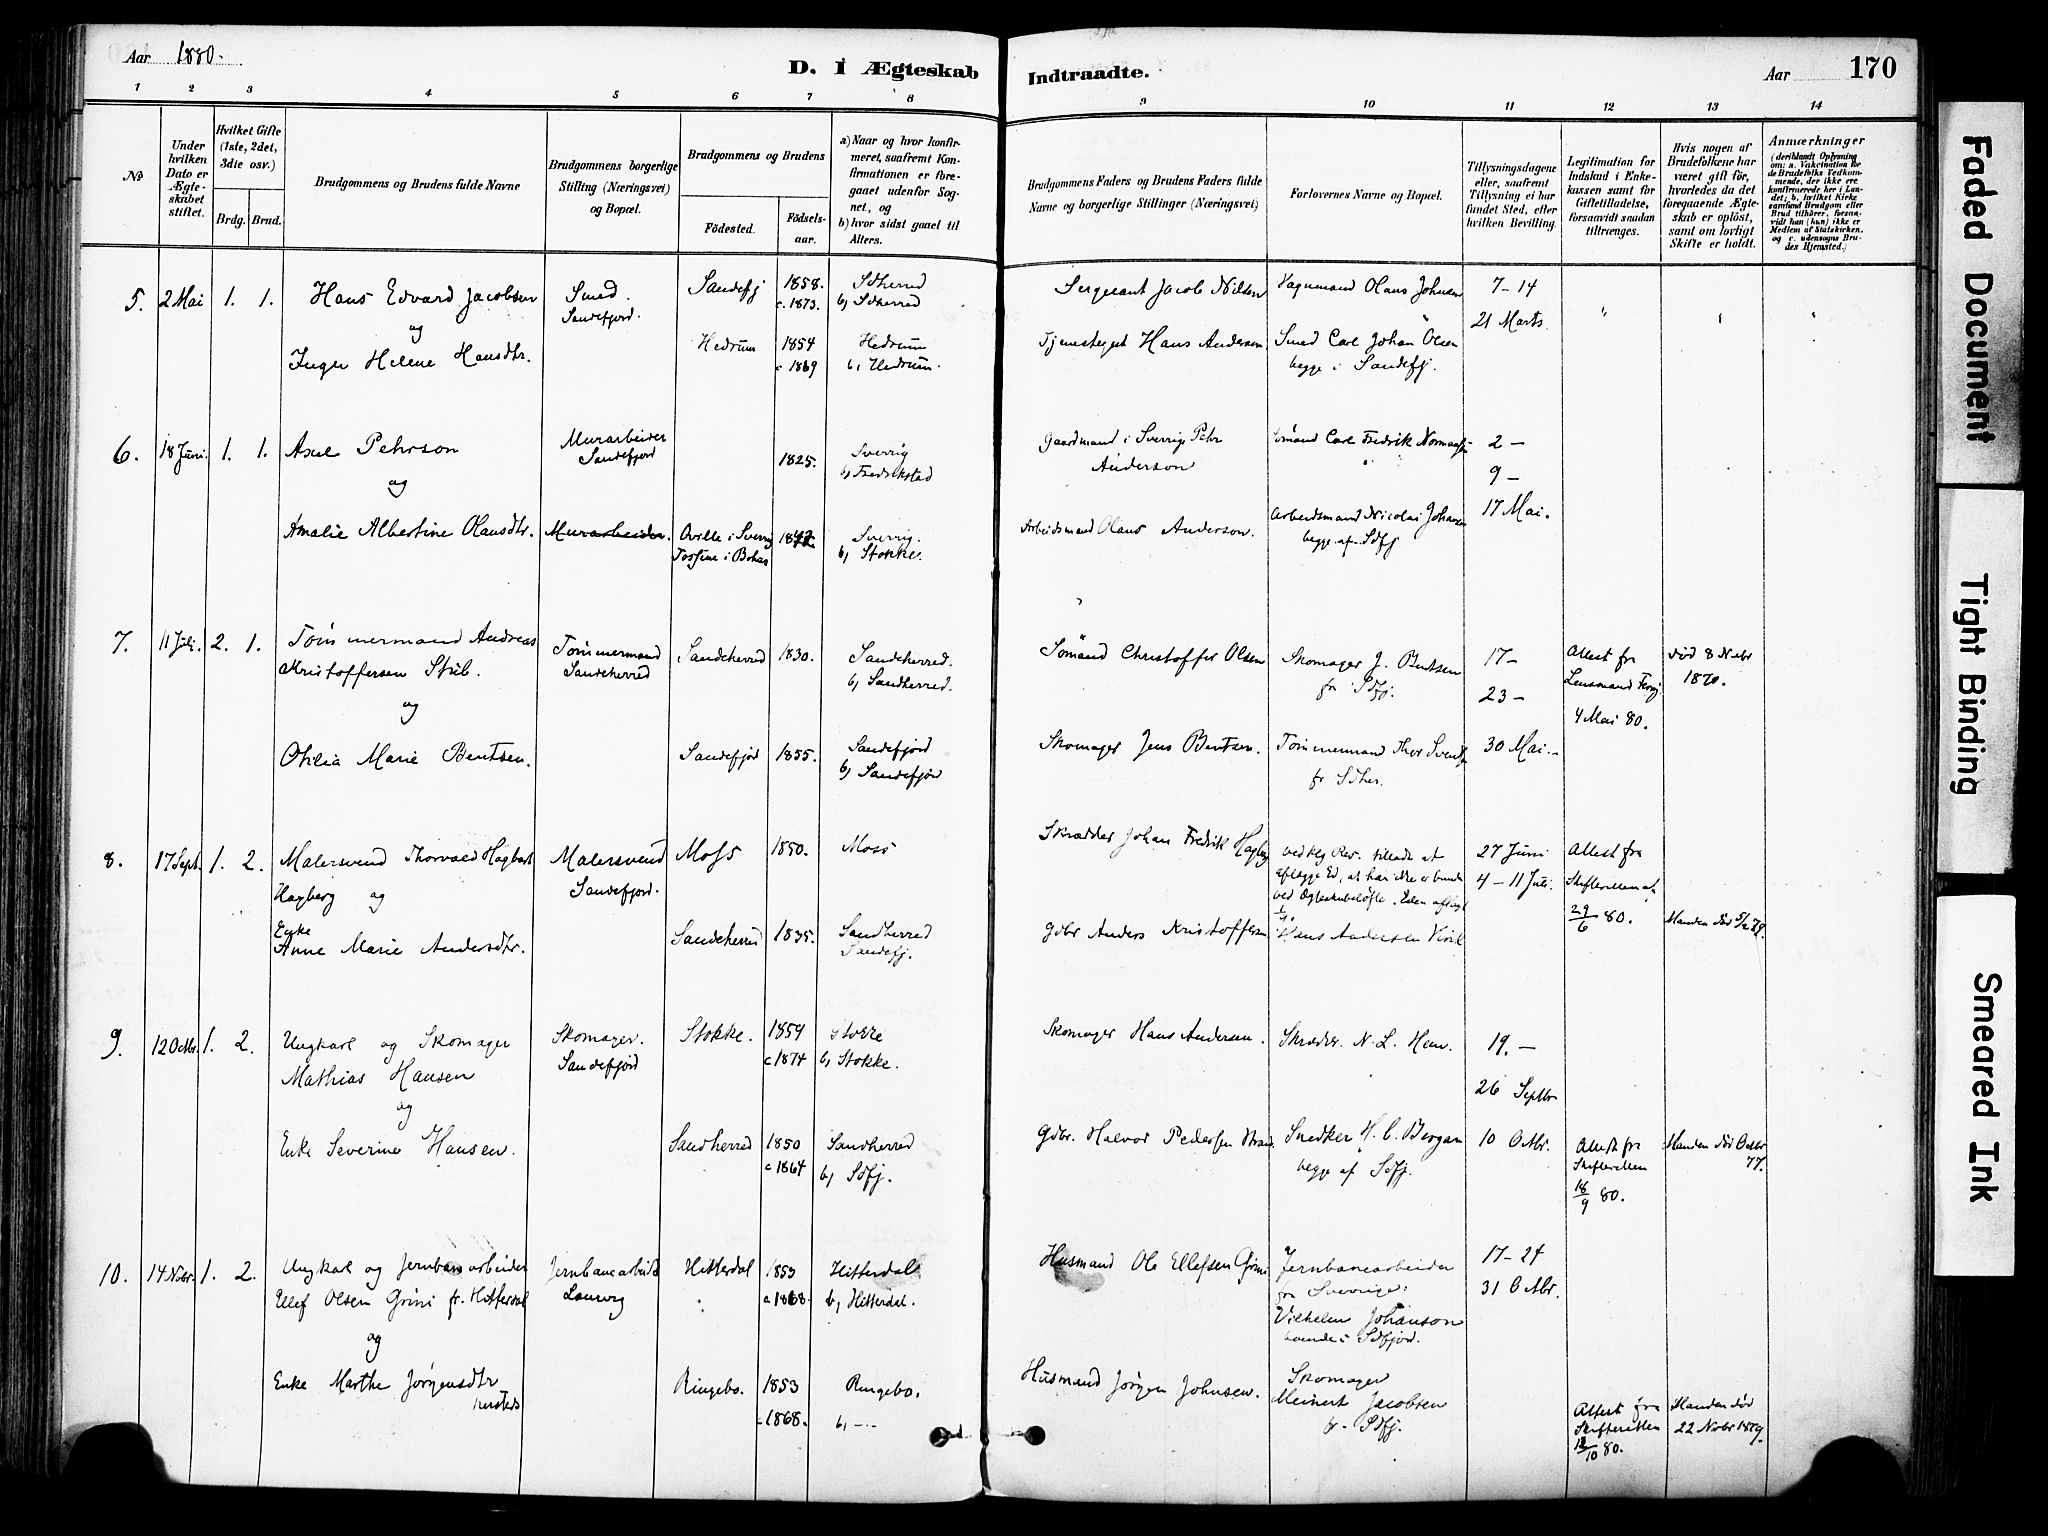 Aar 1880.
D. I Ægteskab Indtraadte.
Aar 170
1 2 3 4 5 6 7 8 9 10 11 12 13 14
No
Under hvilken Dato er Ægteskabet stiftet.
Hvilket Gifte (1ste, 2det, 3die osv.)
Brdg. Brud.
Brudgommens og Brudens fulde Navne
Brudgommens borgerlige Stilling (Næringsvei) og Bopæl.
Brudgommens og Brudens
Fødested.
Fødselsaar.
a) Naar og hvor konfirmeret, saafremt Konfirmationen er foregaaet udenfor Sognet, og
b) hvor sidst gaaet til Alters.
Brudgommens Faders og Brudens Faders fulde Navne og borgerlige Stillinger (Næringsvei)
Forlovernes Navne og Bopæl.
Tillysningsdagene eller, saafremt Tillysning ei har fundet Sted, efter hvilken Bevilling.
Legitimation for Indskud i Enkekassen samt for Giftetilladelse, forsaavidt saadan tiltrænges.
Hvis nogen af Brudefolkene har været gift før, hvorledes da det foregaaende Ægteskab er opløst, samt om lovligt Skifte er holdt.
Anmærkninger
(deriblandt Oplysning om: a. Vaccination for de Brudefolks Vedkommende, der ikke ere konfirmerede her i Landet; b. hvilket Kirkesamfund Brudgom eller Brud tilhører, forsaavidt han (hun) ikke er Medlem af Statskirken, og c. udensogns Brudes Hjemsted.)
5. 2 Mai 1. 1. Hans Edvard Jacobsen Smed. Sandefj 1858. Sdherred Sergeant Jacob Nilsen Vognmand Olaus Johnsen 7-14
og Sandefjord. c. 1873. b, Sdherred 21 Marts.
Inger Helene Hansdtr. Hedrum 1854 Hedrum Tjenestegut Hans Andersen Smed Carl Johan Olsen
c 1869 b, Hedrum. begge i Sandefj.
6. 18 Juni. 1. 1. Axel Pehrson Murarbeider 1825. Sverrig Gaardmand i Sverrige Pehr Sømand Carl Fredrik 2 —
og Sandefjord b, Fredrikstad Anderson 9 —
Amalie Albertine Olausdtr. Murarbeider. i Sverrig Sverrig. Arbeidsmand Olaus Anderson. Arbeidsmand Nicolai Johansen 17 Mai.
b, Stokke. begge af Sdfj
7. 11 Juli. 2. 1. Tømmermand Andreas Tømmermand Sandeherred 1830. Sandeherred. Sømand Christoffer Olsen Skomager J. Bentsen 17- Attest fra død 8 Nvbr
Kristoffersen Stub. Sandeherred b, Sandherred. fr Sdfj. 23 — Lensmand 1870.
og 4 Mai 80.
Othilia Marie Bentsen. Sandefjord 1855. Sandefjord Skomager Jens Bentsen. Tømmermand Thor 30 Mai.
b, Sandefjord fr Sdher.
8. 17 Sept. 1. 2. Malersvend Thorvald Hagbart Malersvend Moss 1850. Moss Skrædder Johan Fredrik Hagberg 27 Juni Attest fra
Hagberg og Sandefjord. aflægge Ed, at han ikke er bunden 4 - 11 Juli. Skifteretten af
ved Ægteskabsløfte. Eden aflagt
Enke 29/6 80.
Anne Marie Andersdtr. Sandeherred 1835. Sandherred Gdbr Anders Kristoffersen Andersen Manden død 5/2 79.
Sandefj.
9. 12 Octbr. 1. 2. Ungkarl og Skomager Skomager. Stokke. 1859 Stokke Skomager Hans Andersen. Skrædder N. L. Hem. 19. —
Mathias Hansen Sandefjord c 1874 b, Stokke. 26 Septbr
og
Enke Severine Hansen. Sandherred 1850 Sandherred Gdbr. Halvor Pedersen Snedker H. C. Bergan 10 Octbr. Attest fra Manden død Octbr
c 1864 b, Sdfj. begge af Sdfj. Skifteretten 77.
18/9 80.
10. 14 Nvbr. 1. 2. Ungkarl og Jernbanarbeider Jernbanearbeid. Hitterdal 1853 Hitterdal Husmand Ole Ellefsen Grini Jernbanearbeider 17- 24
Ellef Olsen Grini fr. Hitterdal Laurvig c 1868. b, Hitterdal. fra Sverrige: 31 Octbr.
og Vilhelm Johanson
boende i Sdfjord.
Enke Marthe Jørgensdtr Ringebo. 1853 Ringebo. Husmand Jørgen Johnsen. Skomager
c 1868. b, — Meinert Jacobsen Attest fra Manden død
fr. Sdfj. Skifteretten 22 Novbr 1879.
/10 80.
Faded Document
Tight Binding
Smeared Ink